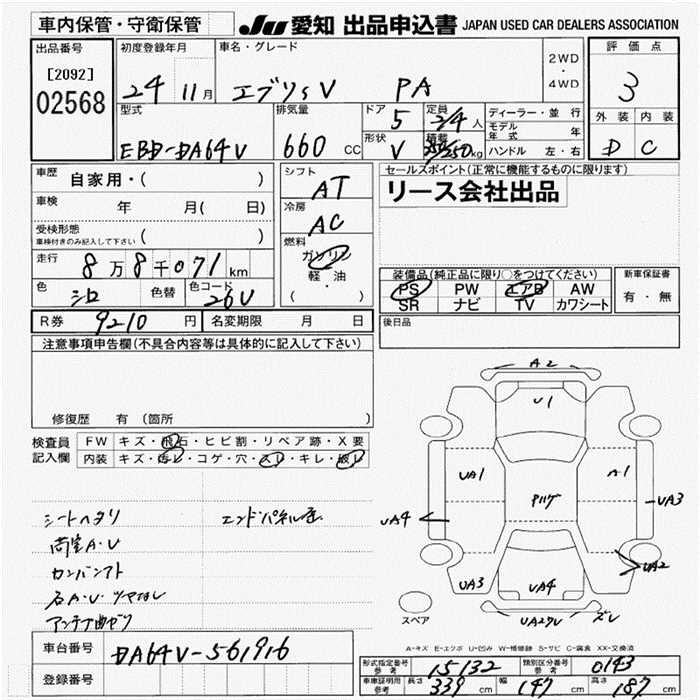 車内保管・守衛保管
JU 愛知 出品申込書 JAPAN USED CAR DEALERS ASSOCIATION
出品番号
[2092]
02568
初度登録年月
24 11月
車名・グレード
エブリィV PA
2WD
・
4WD
評価点
3
外装 内装
D C
型式
EBD-DA64V
排気量
660 cc
ドア
5
形状
V
定員
2/4 人
積載
350/250 kg
ディーラー・並行
モデル年式 年
ハンドル 左・右
車歴
自家用・( )
車検
年 月( 日)
受検形態
車検付きのみ記入して下さい ( )
走行
8万8千071 km
色
シロ
色替
色コード
26U
シフト
AT
冷房
AC
燃料
ガソリン
軽・油
( )
セールスポイント(正常に機能するものに限ります)
リース会社出品
装備品(純正品に限り○をつけてください)
PS PW エアB AW
SR ナビ TV カワシート
新車保証書
有・無
後日品
R券 9210 円
名変期限 月 日
注意事項申告欄(不具合内容等は具体的に記入して下さい)
修復歴 有 (箇所 )
検査員
記入欄
FW キズ・飛石・ヒビ割・リペア跡・X要
内装 キズ・汚レ・コゲ・穴・スレ・キレ・破レ
シートヘタリ
エンドパネル歪
両室A・U
カンバンアト
右A・U ツヤなし
アンテナ曲がり
A2
U1
UA1
A1
UA3
UA4
UA2
UA3
UA4
スペア
A-キズ E-エクボ U-凹み W-補修跡 S-サビ C-腐食 XX-交換済
車台番号
DA64V-561916
登録番号
形式指定番号
参考
15132
類別区分番号
参考
0143
車庫証明用
参考
長さ 339 cm
幅 147 cm
高さ 187 cm